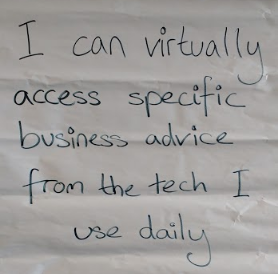 I can virtually
access specific
business advice
from the tech I
use daily